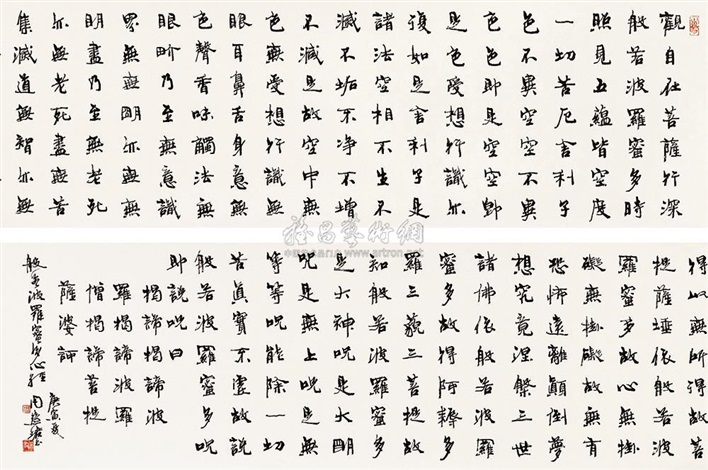 觀自在菩薩行深
般若波羅蜜多時
照見五蘊皆空度
一切苦厄舍利子
色不異空空不異
色色即是空空即
是色受想行識亦
復如是舍利子是
諸法空相不生不
滅不垢不净不增
不減是故空中無
色無受想行識無
眼耳鼻舌身意無
色聲香味觸法無
眼界乃至無意識
界無無明亦無無
明盡乃至無老死
亦無老死盡無苦
集滅道無智亦無
得以無所得故菩
提薩埵依般若波
羅蜜多故心無掛
礙無掛礙故無有
恐怖遠離顛倒夢
想究竟涅槃三世
諸佛依般若波羅
蜜多故得阿耨多
羅三藐三菩提故
知般若波羅蜜多
是大神咒是大明
咒是無上咒是無
等等咒能除一切
苦真實不虛故說
般若波羅蜜多咒
即說咒曰
揭諦揭諦波
羅揭諦波羅
僧揭諦菩提
薩婆訶
般若波羅蜜多心經
庚寅夏
藝術網